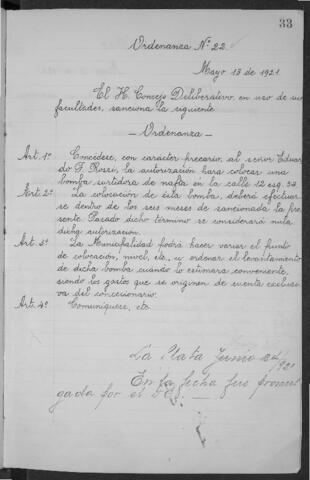 33
Ordenanza Nº 22
Mayo 13 de 1921.
El H. Concejo Deliberativo, en uso de sus
facultades, sanciona la siguiente
— Ordenanza —
Art. 1º Concédese, con carácter precario, al señor Eduar
do F. Rossi, la autorización para colocar una
bomba surtidora de nafta en la calle 12 esq.
Art. 2º La colocación de ésta bomba, deberá efectuar
se dentro de los seis meses de sancionada la pre
sente. Pasado dicho término se considerará nula
dicha autorización.
Art. 3º La Municipalidad podrá hacer variar el punto
de colocación, nivel, etc., u ordenar el levantamiento
de dicha bomba cuando lo estimara conveniente,
siendo los gastos que se originen de cuenta exclusi
va del concecionario.
Art. 4º Comuníquese, etc.
La Plata Junio 24/921
En la fecha fué promul
gada por el D.E.